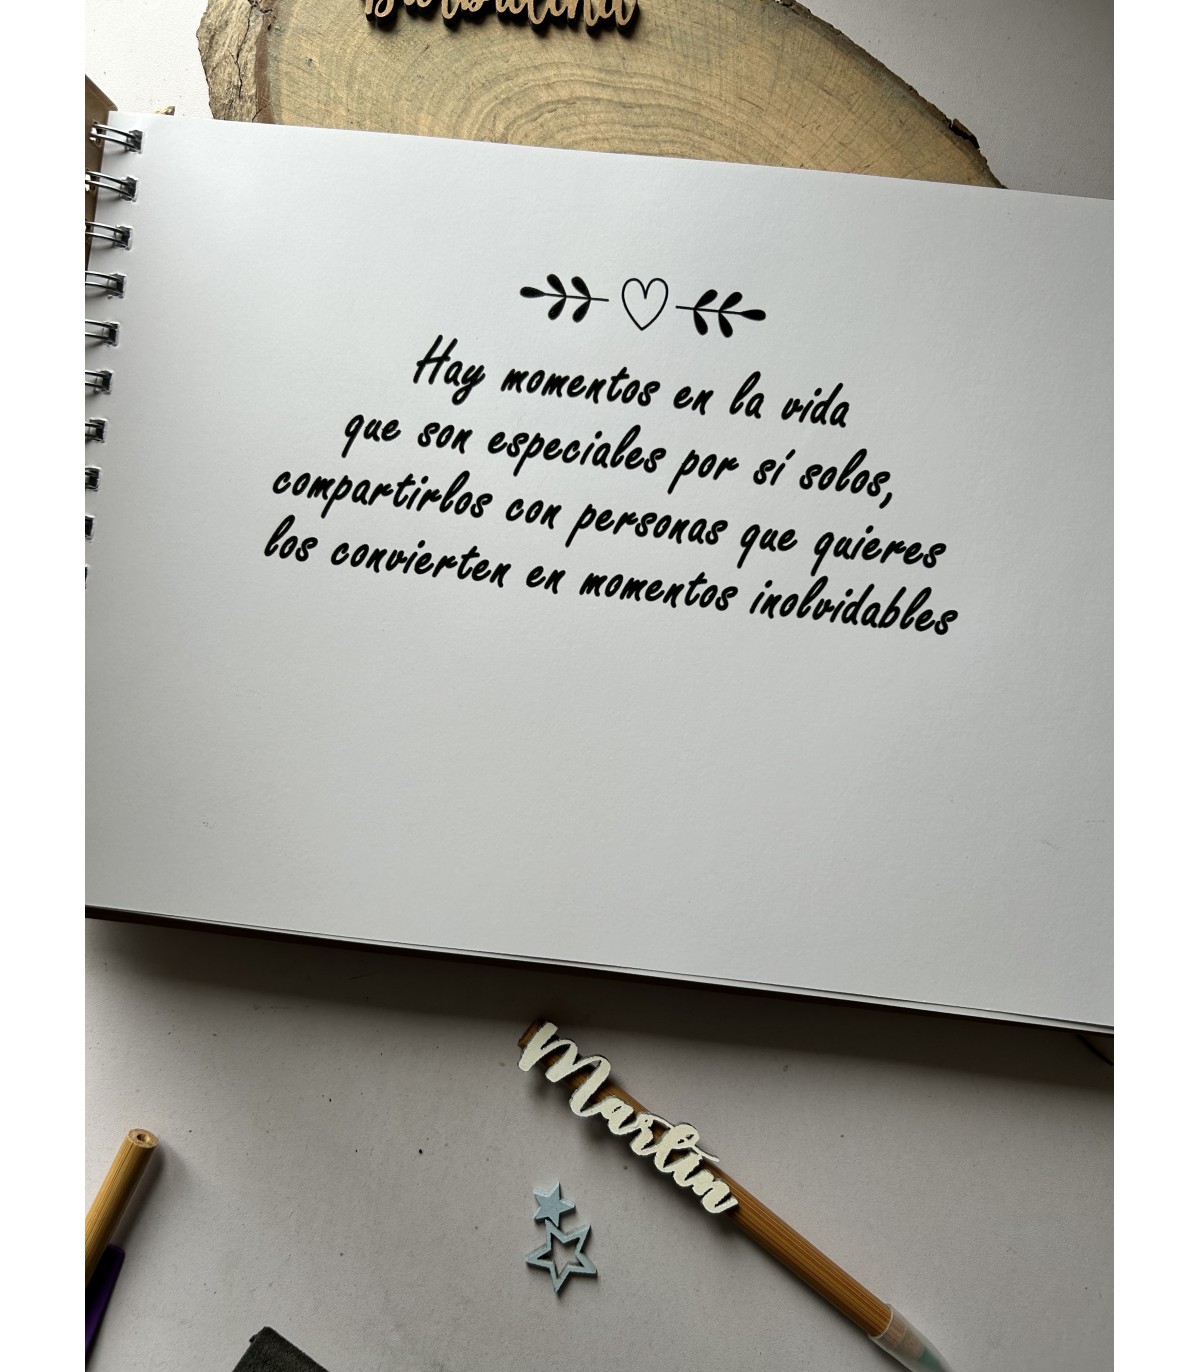 Hay momentos en la vida
que son especiales por sí solos,
compartirlos con personas que quieres
los convierten en momentos inolvidables
Martín